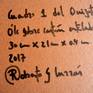 Cuadro 1 del Quijote
Óleo sobre cartón entelado
30 cm x 21 cm x 0.4 cm
2017
(Roberto J